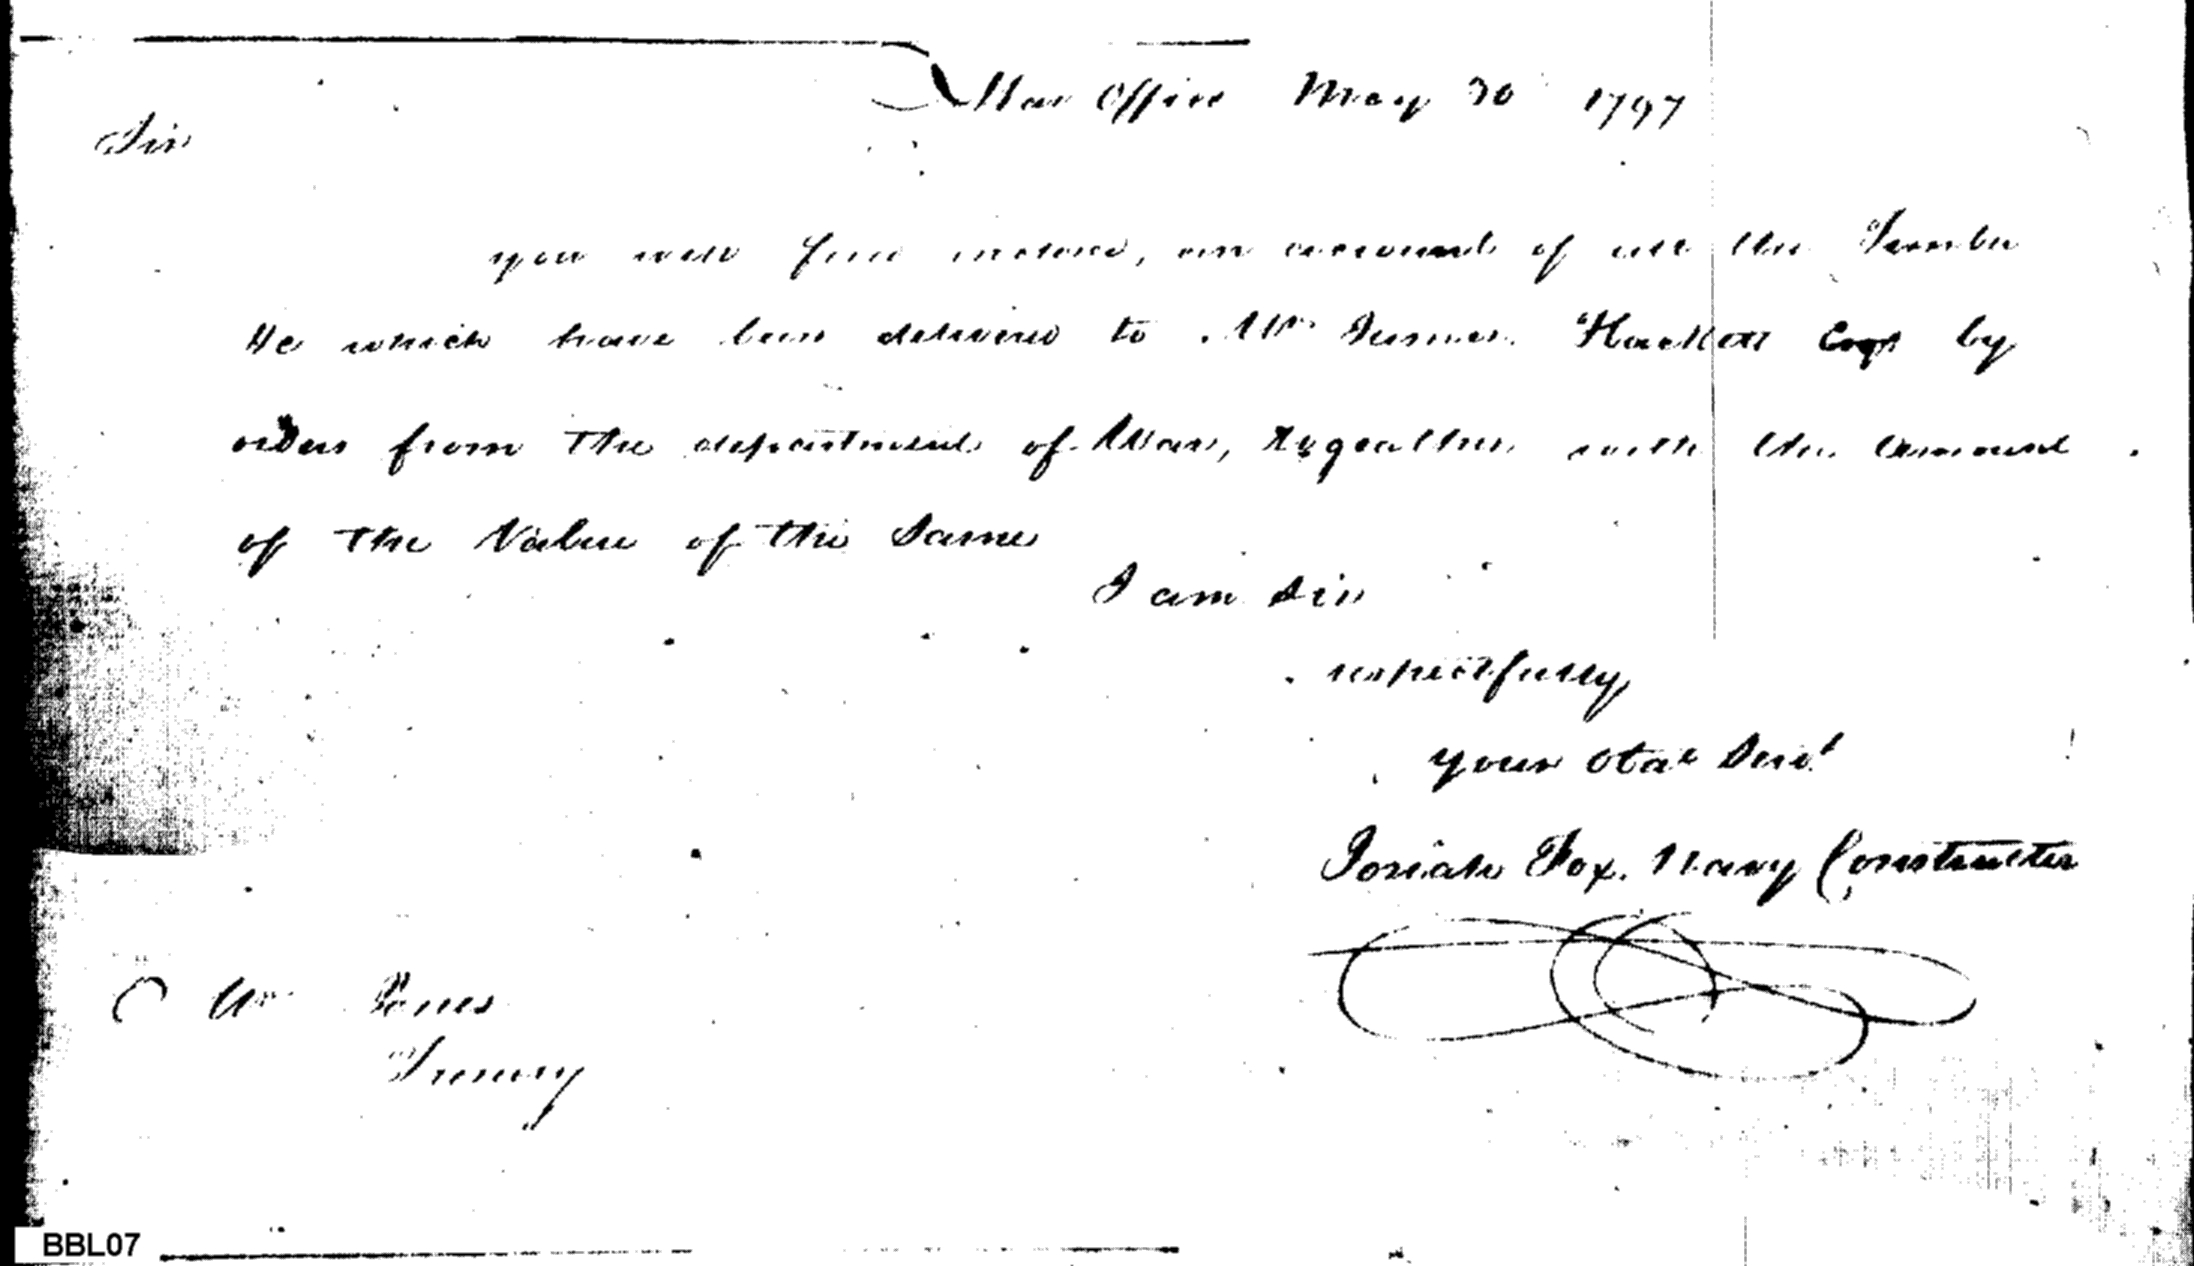 War Office May 30 1797
Sir
you will find inclosed, an account of all the Timber
&c which have been delivered to Mr James Hackett by
orders from the department of War, togeather with the Amount
of the Value of the Same
I am Sir
respectfully
your Obdt Servt
Josiah Fox. Navy Constructer
Mr Jones
BBL07